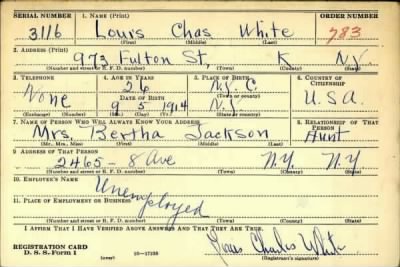 SERIAL NUMBER 1. NAME (Print) ORDER NUMBER
3116 Louis Chas White 783
(First) (Middle) (Last)
2. ADDRESS (Print)
973 Fulton St, K NY.
(Number and street or R. F. D. number) (Town) (County) (State)
3. TELEPHONE 4. AGE IN YEARS 5. PLACE OF BIRTH 6. COUNTRY OF CITIZENSHIP
None 26 N.Y.C.
DATE OF BIRTH (Town or county)
9 5 1914 N.Y. U.S.A.
(Exchange) (Number) (Mo.) (Day) (Yr.) (State or country)
7. NAME OF PERSON WHO WILL ALWAYS KNOW YOUR ADDRESS 8. RELATIONSHIP OF THAT PERSON
Mrs. Bertha Jackson Aunt
(Mr., Mrs., Miss) (First) (Middle) (Last)
9. ADDRESS OF THAT PERSON
2465-8 Ave N.Y. N.Y.
(Number and street or R. F. D. number) (Town) (County) (State)
10. EMPLOYER'S NAME
Unemployed
11. PLACE OF EMPLOYMENT OR BUSINESS
(Number and street or R. F. D. number) (Town) (County) (State)
I AFFIRM THAT I HAVE VERIFIED ABOVE ANSWERS AND THAT THEY ARE TRUE.
REGISTRATION CARD
D. S. S. Form 1 (over) Louis Charles White
(Registrant's signature)